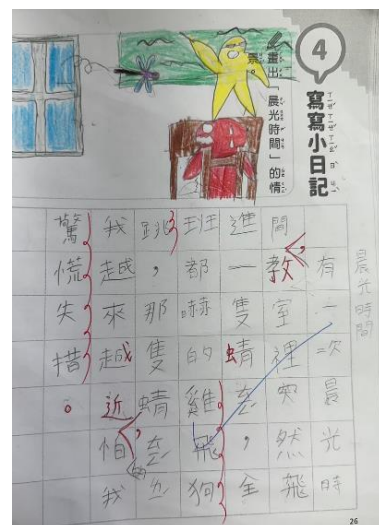 4
寫寫小日記
畫出「晨光時間」的情景。
晨光時間
有一次晨光時
間,教室裡突然飛
進一隻蜻,全
班都嚇的雞飛狗
跳,那隻蜻
我越來越近,怕的我
驚慌失措。
26